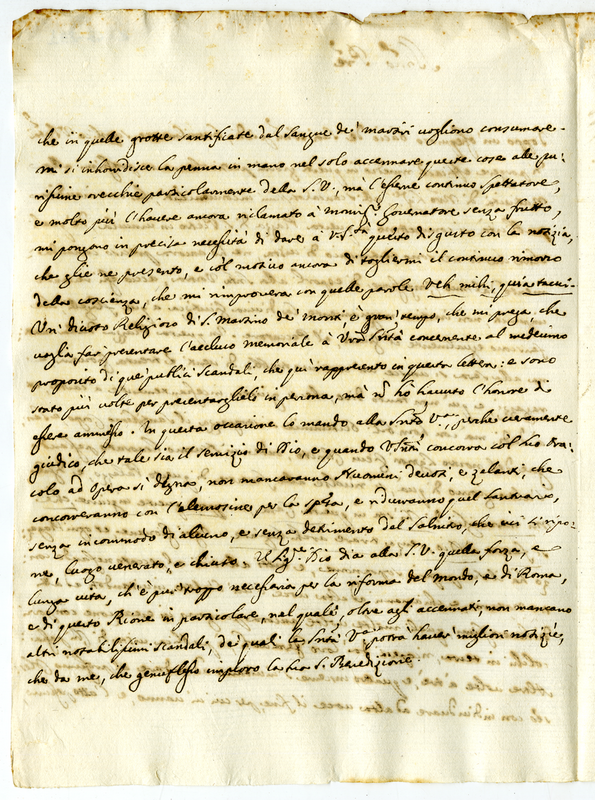 che in quelle grotte santificate dal sangue de' martiri vogliono consumare.
mi si inhorridisce la penna in mano nel solo accennare queste cose alle pu-
rissime orecchie particolarmente della S.V., mà l'essere continuo spettatore,
e molto più l'havere ancora riclamato à Monsig.r Governatore senza frutto,
mi pongono in precisa necessità di dare à V. S.tà questo disgusto con la notizia,
che glie ne presento, e col motivo ancora di togliermi il continuo rimorso
della coscienza, che mi rimprovera con quelle parole Veh mihi, quia tacui.
Un' divoto Religioso di S. Martino de' Monti è gran' tempo, che mi prega, che
voglia far presentare l'accluso memoriale à Vra S.ntà concernente al medesimo
proposito di que' publici scandali, che quì rappresento in questa lettera: e sono
stato più volte per presentarglieli in persona, mà n̄ hò havuto l'honore di
essere ammesso. In questa occasione lo mando alla S.ntà V.ra, perche veramente
giudico, che tale sia il servizio di Dio, e quando V. S.ntà concorra col suo Ora-
colo ad opera sì degna, non mancaranno Huomini devoti, e zelanti, che
concorreranno con l'elemosine per la spesa, e ridurranno quel Santuario,
senza incommodo di alcuno, e senza detrimento del Salnitro, che ivi si ripo-
ne, luogo venerato, e chiuso. Il Sig.re Dio dia alla S.V. quella forza, e
lunga vita, ch'è pur troppo necessaria per la riforma del mondo, e di Roma,
e di questo Rione in particolare, nel quale, oltre agli accennati, non mancano
altri notabilissimi scandali, de' quali la S.ntà V.ra potrà havere migliori notizie,
che da me, che genuflesso imploro la sua S. Benedizione